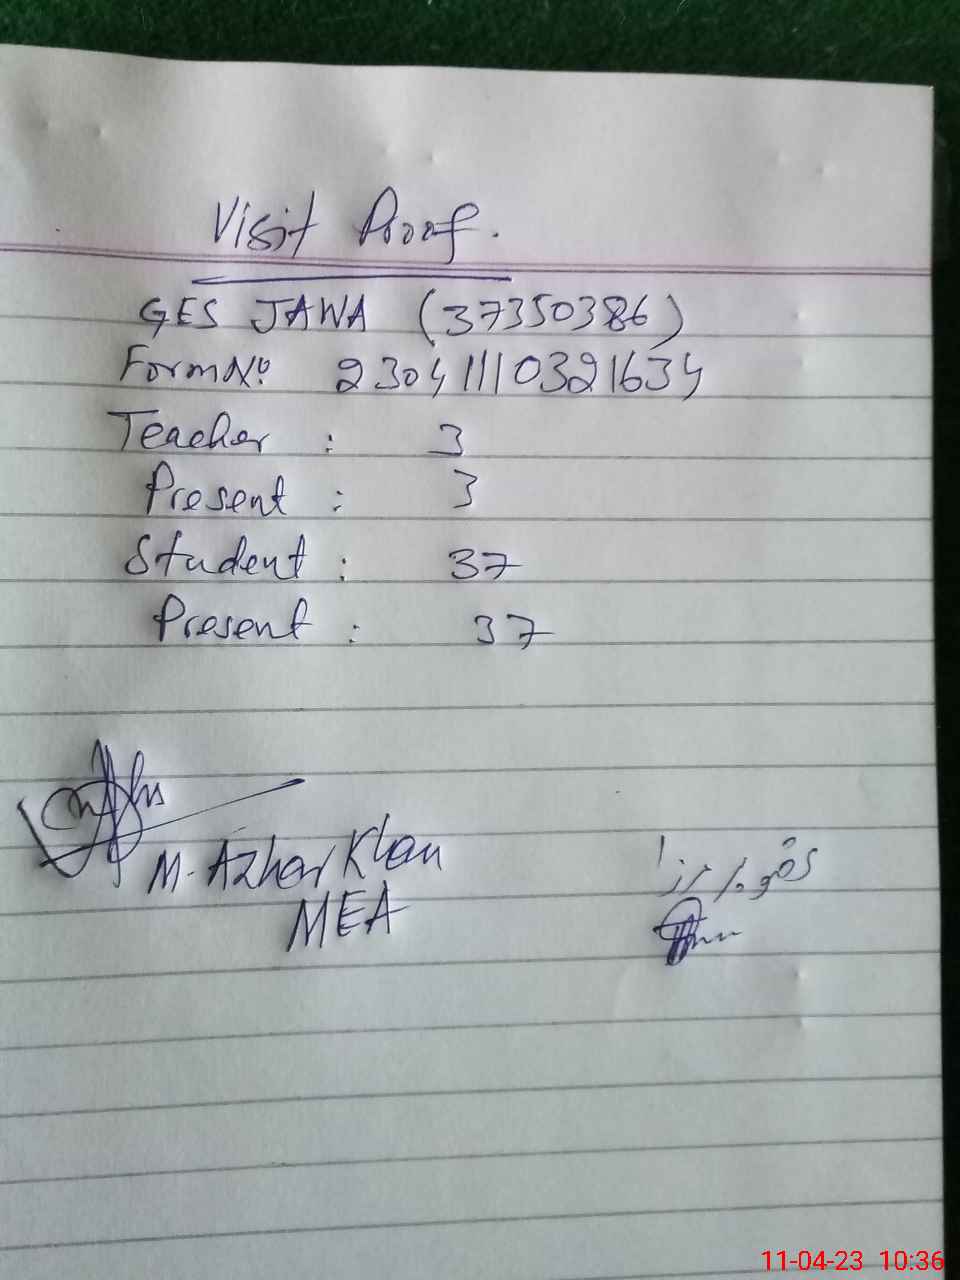 Visit Proof.
GES JAWA (37350386)
Form No. 23041110321634
Teacher : 3
Present : 3
Student : 37
Present : 37
M. Azhar Khan
MEA
11-04-23 10:36